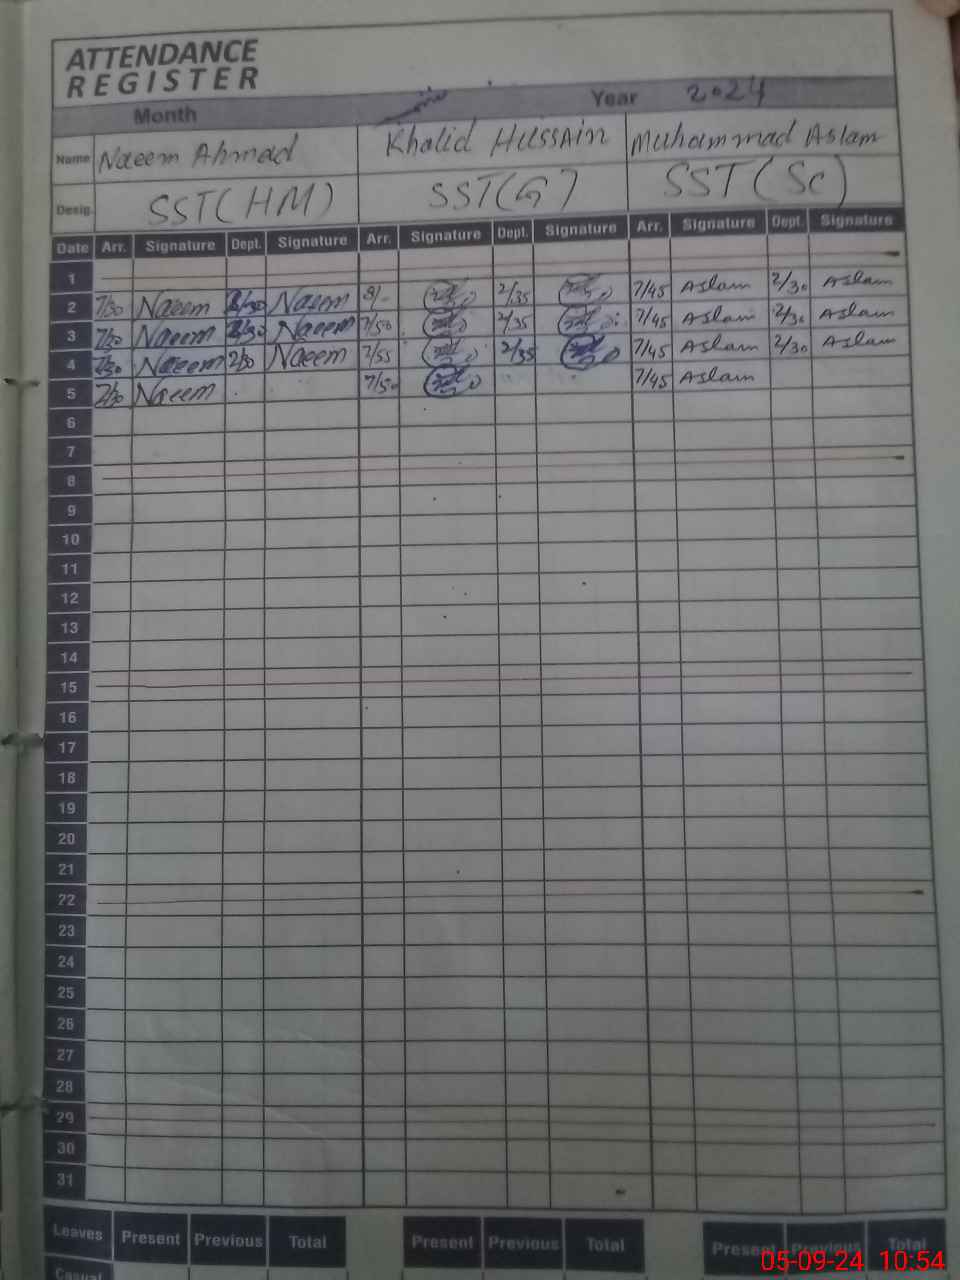 ATTENDANCE
REGISTER
Month Year 2024
Name Naeem Ahmad Khalid Hussain Muhammad Aslam
Desig. SST(HM) SST(G) SST(Sc)
Date Arr. Signature Dept. Signature Arr. Signature Dept. Signature Arr. Signature Dept. Signature
1
2 7/30 Naeem 2/30 Naeem 8/- 2/35 7/45 Aslam 2/30 Aslam
3 7/30 Naeem 2/30 Naeem 7/50 2/35 7/45 Aslam 2/30 Aslam
4 7/30 Naeem 2/30 Naeem 7/55 2/35 7/45 Aslam 2/30 Aslam
5 7/30 Naeem 7/50 7/45 Aslam
6
7
8
9
10
11
12
13
14
15
16
17
18
19
20
21
22
23
24
25
26
27
28
29
30
31
Leaves Present Previous Total Present Previous Total Present Previous Total
Casual
05-09-24 10:54